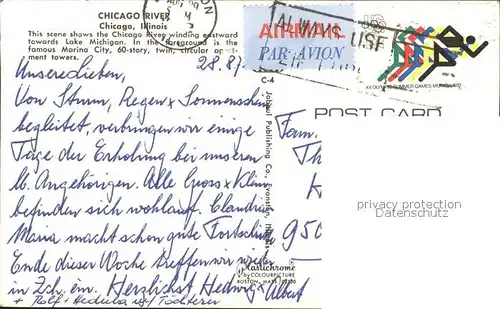 CHICAGO RIVER
Chicago, Illinois
This scene shows the Chicago River winding eastward
towards Lake Michigan. In the foreground is the
famous Marina City, 60-story, twin, circular apart-
ment towers.
AIRMAIL
PAR AVION
ALWAYS USE
XX OLYMPIC SUMMER GAMES MUNICH 1972
C-4
POST CARD
28.8.
Unsere Lieben,
Von Sturm, Regen & Sonnenschein
begleitet, verbringen wir einige
Tage der Erholung bei unseren
lb. Angehörigen. Alle Gross & Klein
befinden sich wohlauf. Claudia
Maria macht schon gute Fortschritte
Ende dieser Woche treffen wir wieder
in Zch. ein. Herzlichst Hedwig & Albert
+ Rolf + Hedi & Töchterer
Fam.
Th
K
950
privacy protection
Datenschutz
Plastichrome
by COLOURPICTURE
BOSTON, MASS. 02130
Publishing Co., Evanston,